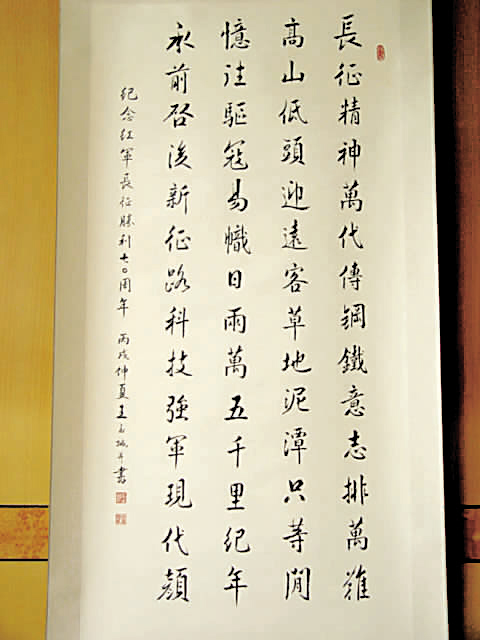 長征精神萬代傳鋼鐵意志排萬難
高山低頭迎遠客草地泥潭只等閒
憶往驅寇易幟日兩萬五千里紀年
承前啓後新征路科技強軍現代顏
紀念红軍長征勝利七〇周年 丙戌仲夏王 書